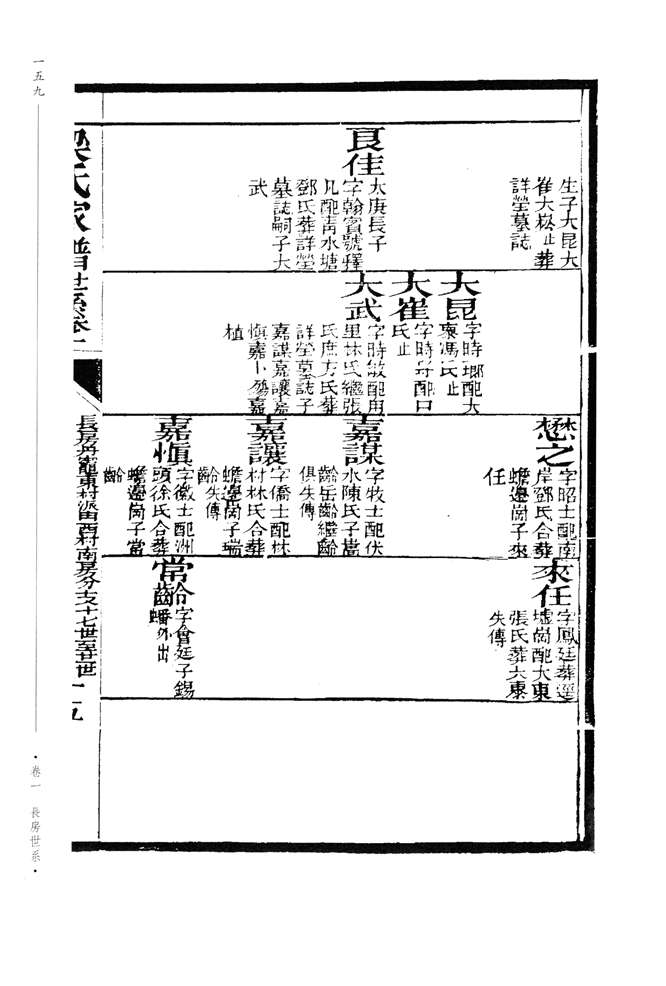 生子大昆大
崔大崧止葬
詳塋墓誌
良佳
太庚長子
字翰賓號釋
凡配青水塘
鄧氏葬詳塋
墓誌嗣子大
武
大昆
字時瑯配大
東馮氏止
大崔
字時
配口
氏止
大武
字時敏配甪
里林氏繼張
氏庶方氏葬
詳塋墓誌子
嘉謀嘉讓嘉
愼嘉卜殤嘉
植
懋之
字昭士配南
岸鄧氏合葬
蟾邊崗子來
任
嘉謀
字牧士配伏
水陳氏子嵩
齡岳齡繼齡
俱失傳
嘉讓
字僑士配林
村林氏合葬
蟾邊崗子瑞
齡失傳
嘉愼
字徽士配洲
頭徐氏合葬
蟾邊崗子當
齡
來任
字鳳廷葬逕
墟崗配大東
張氏葬大東
失傳
常齡
字會廷子錫
蟠外出
梁氏家譜世系卷一
長房丹竈東村
西村南房分支十七世至廿世
十五
一五九
·卷一 長房世系·